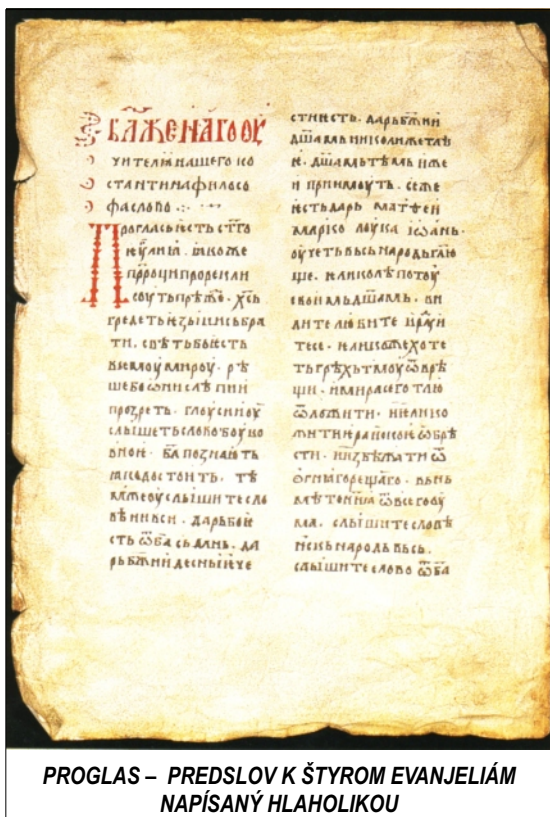 БЛАЖЕНАГО ОУ
чителꙗ нашего ко
стантина филосо
фа слово ·:·
Проглась ѥсть ст҃го
ѥѵ҃лиꙗ · ꙗкоже
пр҃роци прорекли
соуть прѣжⷣе · х҃сь
гредеть ѥзыкы сьбра
ти · свѣть бо ѥсть
вьсемоу мироу · рѣ
ше бо ѡни слѣпии
прозреть · глоусии оу
слышеть слово боуко
вноѥ · б҃а познати
ꙗко достоить · тѣ
мже оуслышите сло
вѣни вьси · дарь бо ѥ
сть ѿ б҃а сь дань · да
рь бж҃ии десныѥ че
сти ѥсть · дарь бж҃ии
дш҃амь николиже тлѣ
ѥ · дш҃амь тѣмь иже
и приимоуть · се же
ѥсть дарь матѳеи
марко лоука іѡань ·
оучеть вьсь народь гл҃ю
ще · ѥлико лѣпотоу
своимь дш҃амь · ви
дите любите и
тесе · ѥликоже хоте
ть грѣхь тмоу ѿврѣ
щи · и мира сего тлю
ѿложити · и ѥлико
житиѥ раискоѥ ѡбрѣ
сти · и избѣжати ѿ
огнꙗ горещаго · вьнь
мѣте ѿ всего оу
ма · слышите словѣ
ньскь народь вьсь ·
слышите слово ѿ б҃а
PROGLAS – PREDSLOV K ŠTYROM EVANJELIÁM
NAPÍSANÝ HLAHOLIKOU